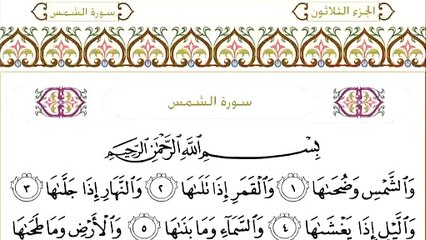 الجزء الثلاثون
سورة الشمس
سورة الشمس
بِسْمِ اللَّهِ الرَّحْمَٰنِ الرَّحِيمِ
وَالشَّمْسِ وَضُحَىٰهَا ١ وَالْقَمَرِ إِذَا تَلَىٰهَا ٢ وَالنَّهَارِ إِذَا جَلَّىٰهَا ٣
وَالَّيْلِ إِذَا يَغْشَىٰهَا ٤ وَالسَّمَآءِ وَمَا بَنَىٰهَا ٥ وَالْأَرْضِ وَمَا طَحَىٰهَا